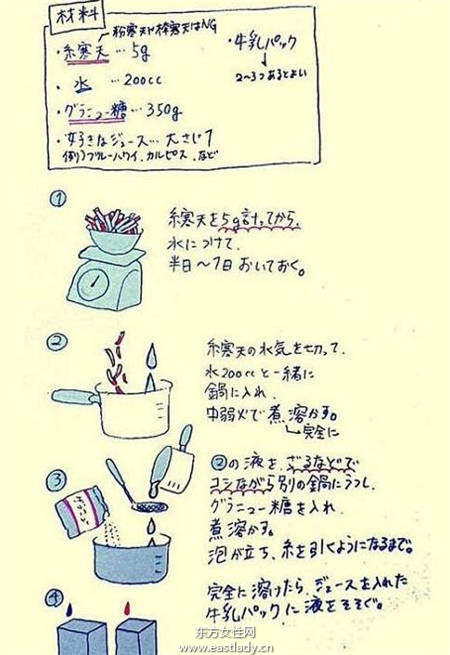 材料
粉寒天や棒寒天はNG
・糸寒天…5g
・水…200cc
・グラニュー糖…350g
・好きなジュース…大さじ1
(例)ブルーハワイ、カルピス、など
・牛乳パック
2〜3つあるとよい
①
糸寒天を5g計ってから、
水につけて、
半日〜1日おいておく。
②
糸寒天の水気を切って、
水200ccと一緒に
鍋に入れ、
中弱火で煮溶かす。
完全に
③
②の液を、ざるなどで
コシながら別の鍋にうつし、
グラニュー糖を入れ、
煮溶かす。
泡が立ち、糸を引くようになるまで。
④
完全に溶けたら、ジュースを入れた
牛乳パックに液をそそぐ。
东方女性网
www.eastlady.cn